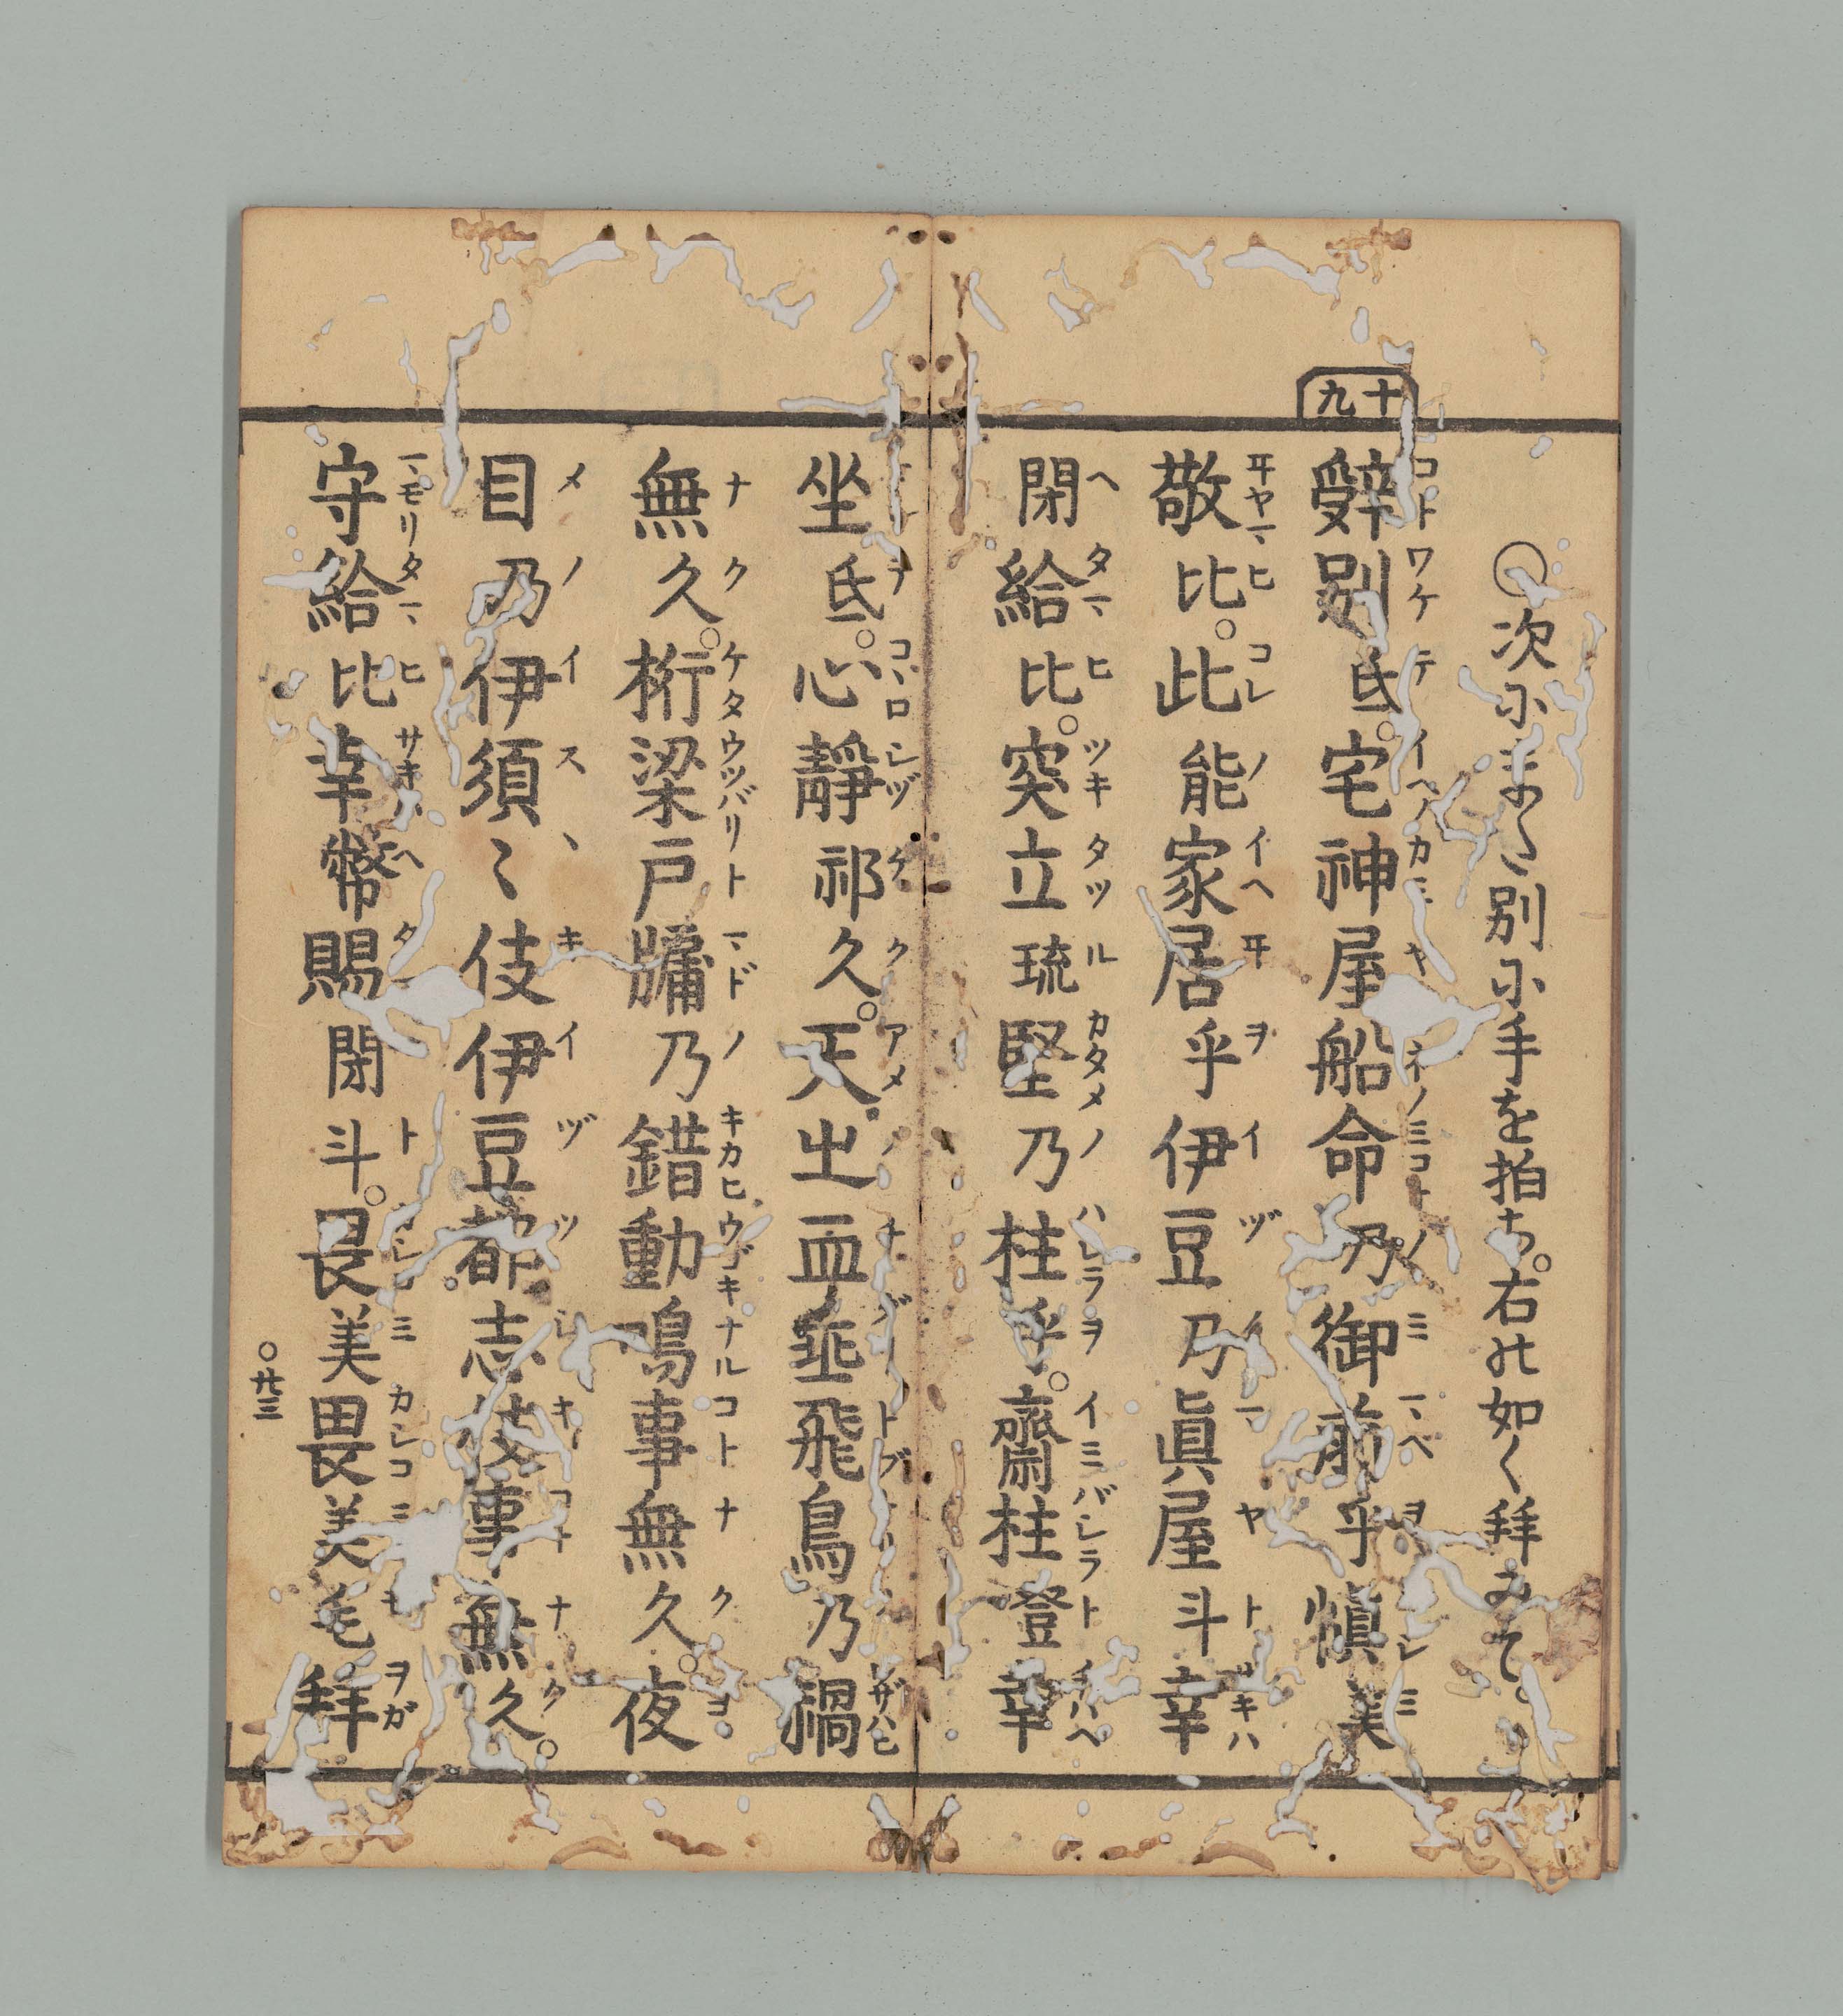 十九
○次尓まく別尓手を拍ち。右の如く拜みて。
辭別氐。宅神屋船命乃御前乎愼美
敬比。此能家居乎伊豆乃眞屋斗幸
閇給比。突立琉堅乃柱乎。齋柱登幸
坐氐。心靜祁久。天之血垂飛鳥乃禍
無久。桁梁戸牗乃錯動鳴事無久。夜
目乃伊須〻伎伊豆都志伎事無久。
守給比幸幣賜閇斗。畏美畏美毛拜
○廿三